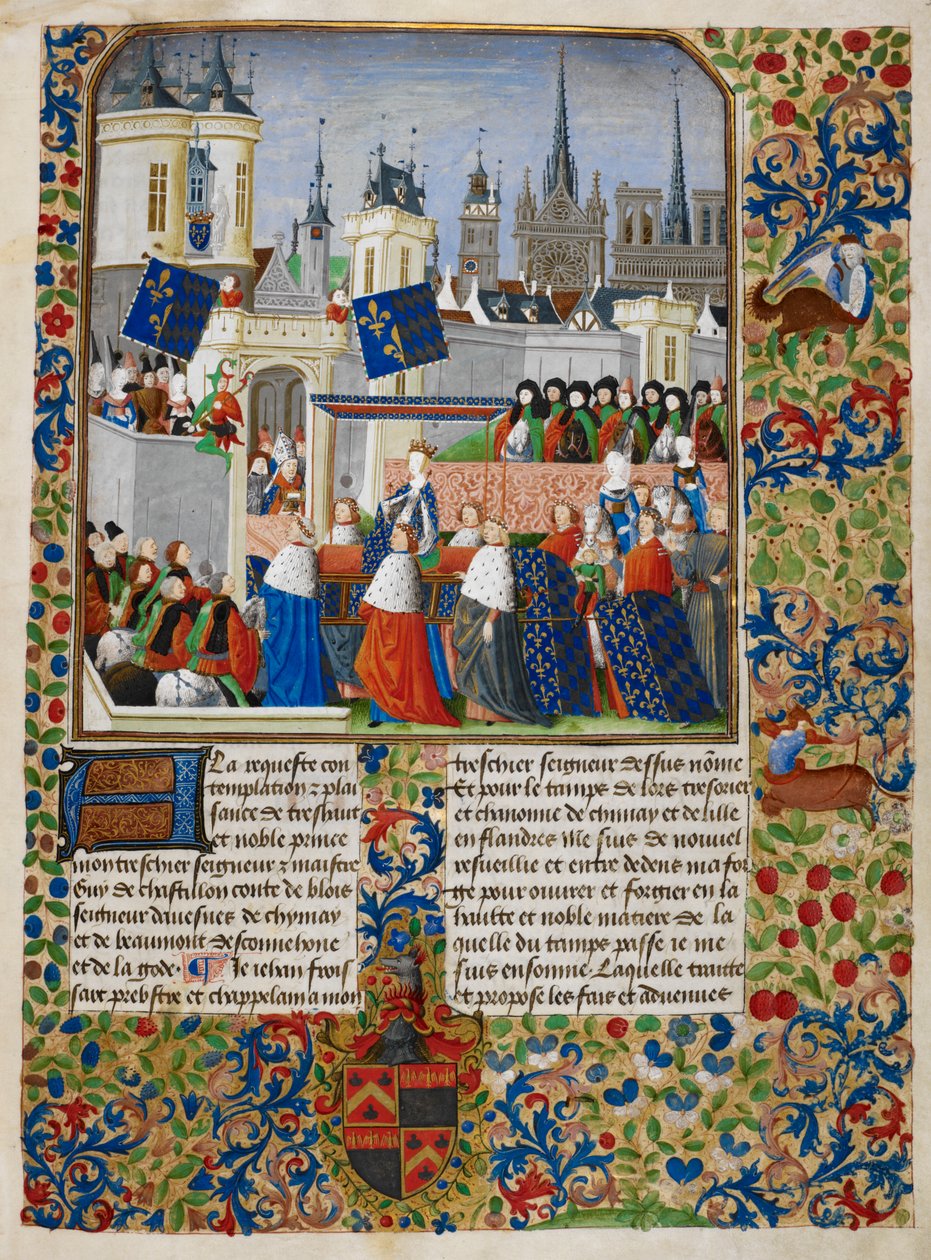 A la requeste con
templation z plai
sance de treshault
et noble prince
mon treschier seigneur z maistre
Guy de chastillon conte de blois
seigneur davesnes de chymay
et de beaumont
et de la gode. Je iehan frois
sart prebstre et chappelain a mon
treschier seigneur dessus nome
Et pour le tamps de lors tresorier
et chanonne de chimay et de lille
en flandres me suis de nouuel
resueillie et entre dedens ma for
ge pour ouurer et forgier en la
haulte et noble matiere de la
quelle du tamps passe ie me
suis ensonnie. Laquelle traitte
et propose les fais et aduenues